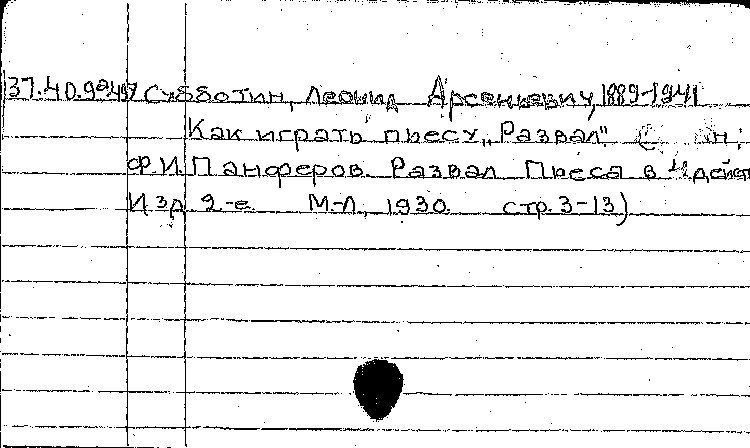 37.40.9 Субботин, Леонид Арсеньевич, 1889-1941
Как играть пьесу „Развал" (
Ф.И. Панферов. Развал. Пьеса в 4 дейст
Изд. 2-е М-Л, 1930 стр. 3-13)